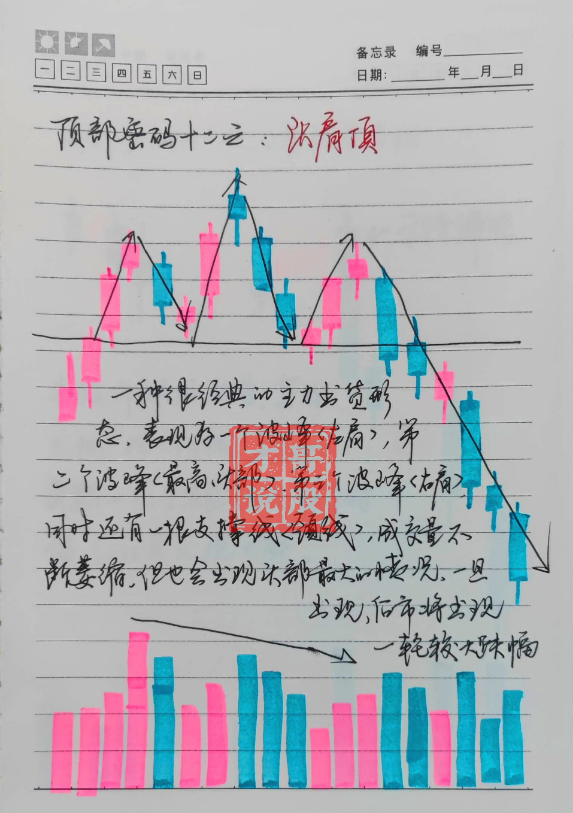 备忘录 编号
一 二 三 四 五 六 日
日期: 年 月 日
顶部密码十二之:头肩顶
一种很经典的主力出货形
态,表现为一个波峰<左肩>,第
二个波峰<最高头部>,第三个波峰<右肩>
同时还有一根支撑线<颈线>,成交量不
断萎缩,但也会出现头部最大的情况,一旦
出现,后市将出现
一轮较大跌幅
才哥说股